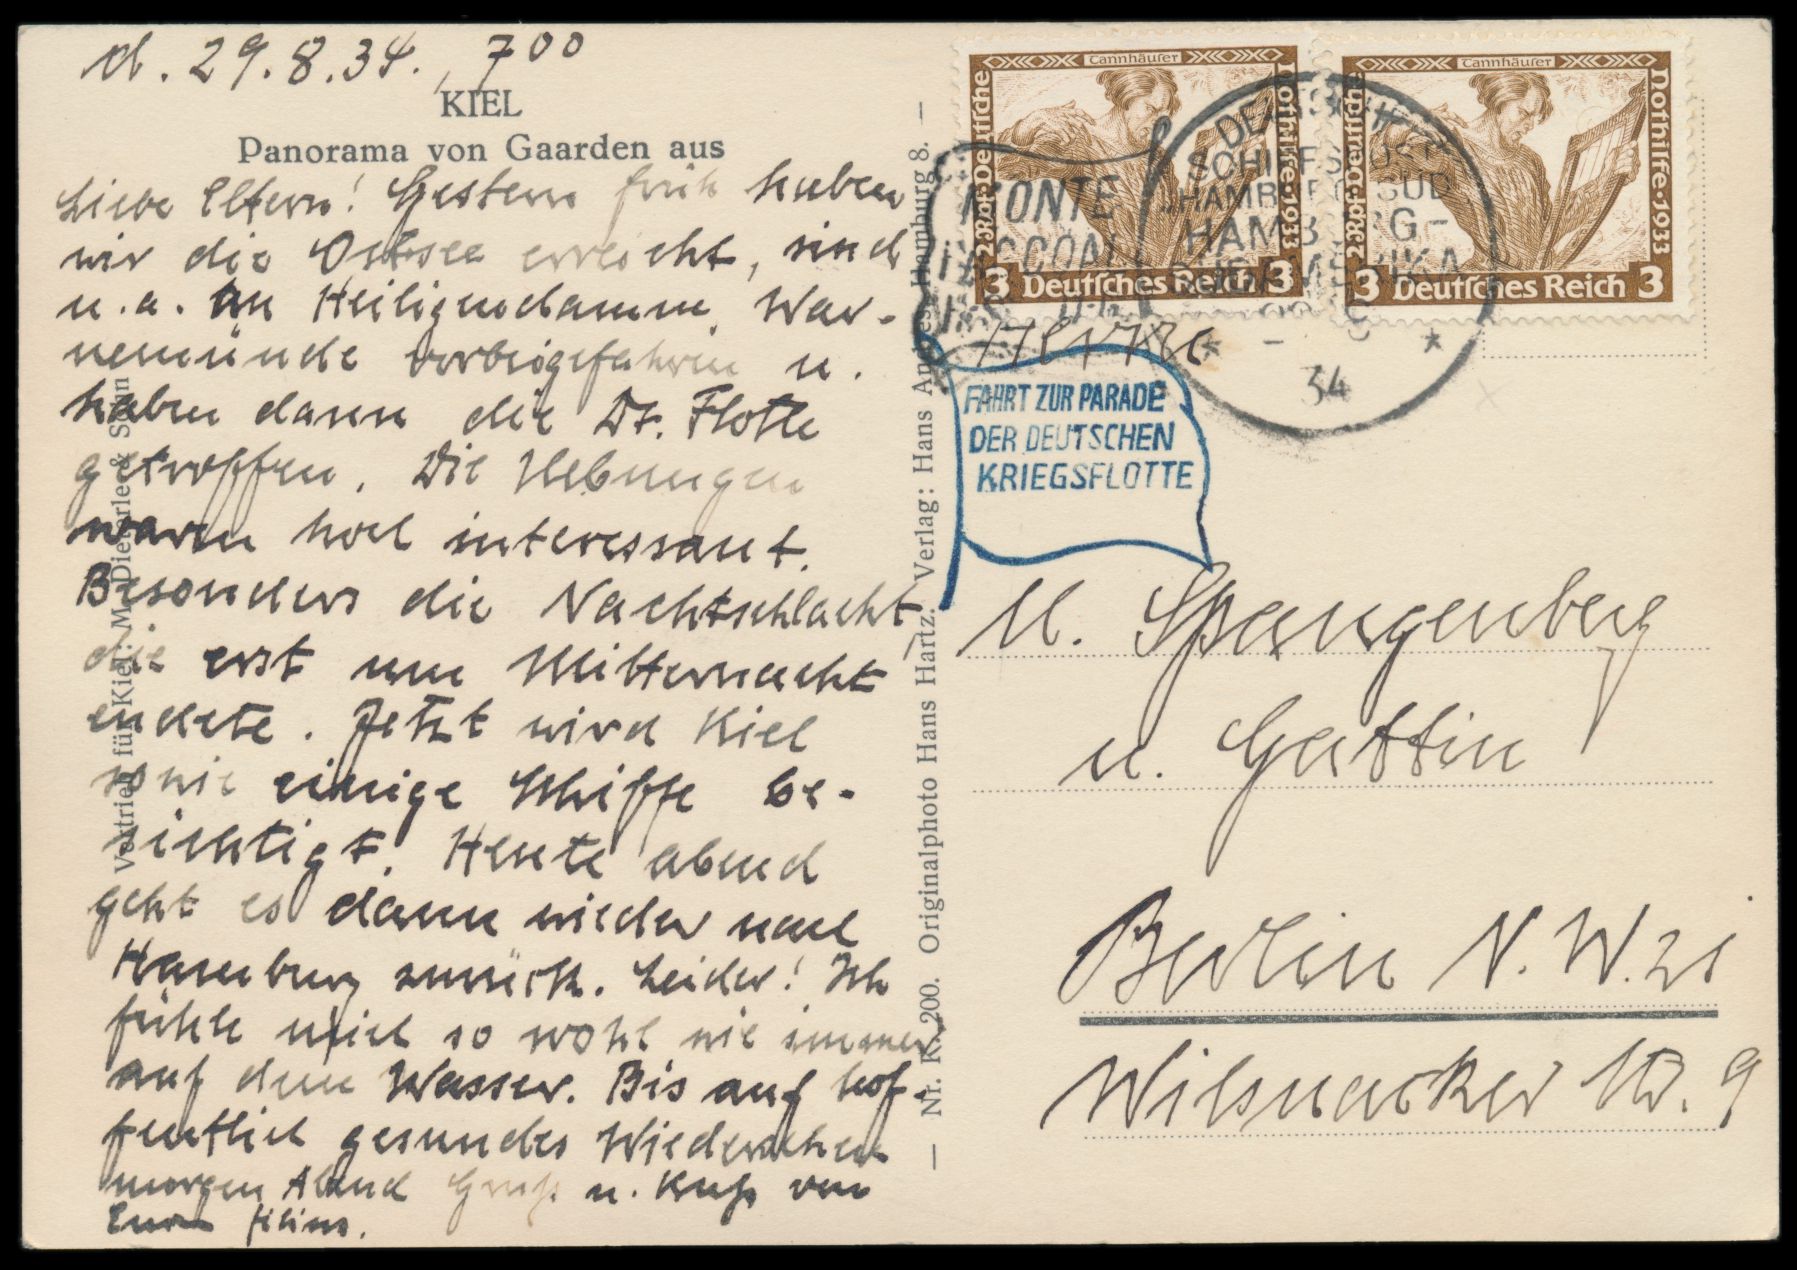 d. 29.8.34., 7 00
KIEL
Panorama von Gaarden aus
Liebe Eltern! Gestern früh haben
wir die Ostsee erreicht, sind
u.a. an Heiligendamm, War-
nemünde vorbeigefahren u.
haben dann die Dt. Flotte
getroffen. Die Uebungen
waren hoch interessant.
Besonders die Nachtschlacht,
die erst um Mitternacht
endete. Jetzt wird Kiel
sowie einige Schiffe be-
sichtigt. Heute abend
geht es dann wieder nach
Hamburg zurück. Leider! Ich
fühle mich so wohl wie immer
auf dem Wasser. Bis auf hof-
fentlich gesundes Wiedersehen
morgen Abend Gruß u. Kuß von
Eurem Heinz.
Vertrieb für Kiel: M. Dieterle & Sohn
— Nr. K. 200. Originalphoto Hans Hartz. Verlag: Hans Andres, Hamburg 8. —
Tannhäuser
2 Rpf · Deutsche Nothilfe · 1933
3 Deutsches Reich 3
Tannhäuser
2 Rpf · Deutsche Nothilfe · 1933
3 Deutsches Reich 3
MONTE
DEUTSCHE
SCHIFFSPOST
HAMBURG-SÜD
HAMBURG-
SÜDAMERIKA
34
FAHRT ZUR PARADE
DER DEUTSCHEN
KRIEGSFLOTTE
M. Spangenberg
u. Gattin
Berlin N.W. 21
Wilsnacker Str. 9